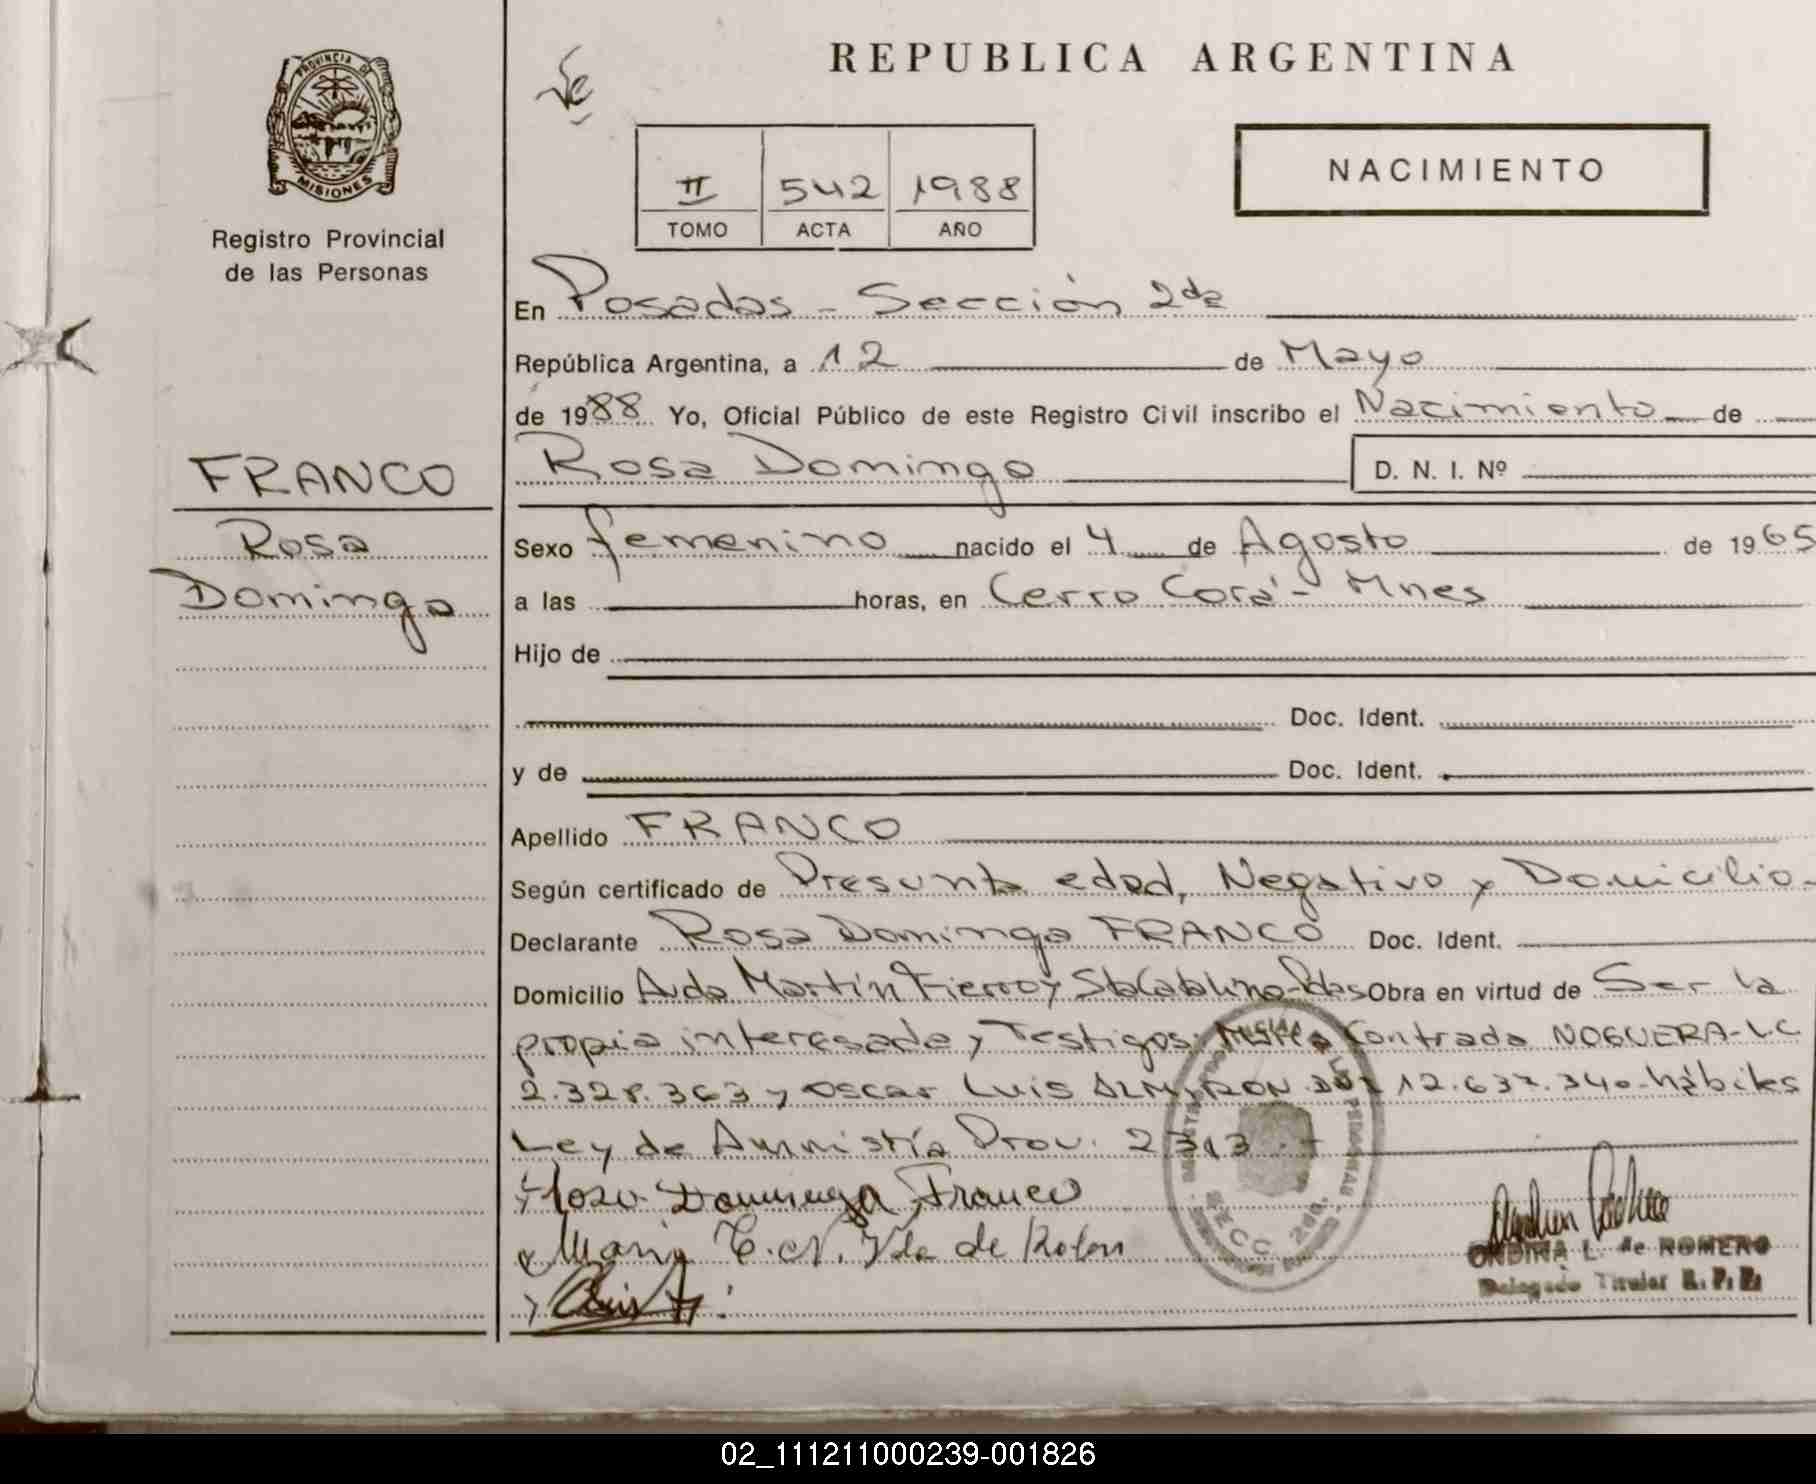 REPUBLICA ARGENTINA
PROVINCIA DE
MISIONES
Registro Provincial
de las Personas
II 542 1988
TOMO ACTA AÑO
NACIMIENTO
En Posadas - Sección 2da
República Argentina, a 12 de Mayo
de 1988 Yo, Oficial Público de este Registro Civil inscribo el Nacimiento de
FRANCO
Rosa Dominga
D. N. I. Nº
Rosa
Sexo femenino nacido el 4 de Agosto de 1965
Dominga
a las horas, en Cerro Corá - Mnes
Hijo de
Doc. Ident.
y de Doc. Ident.
Apellido FRANCO
Según certificado de Presunta edad, Negativo y Domicilio-
Declarante Rosa Dominga FRANCO Doc. Ident.
Domicilio Avda Martín Fierro y Sta Catalina-Pdas Obra en virtud de Ser la
propia interesada y Testigos: Contrada NOGUERA-L.C
2.328.363 y Oscar Luis ALMIRON DNI 12.637.340-hábiles
Ley de Amnistía Prov. 2313.-
Rosa Dominga Franco
Maria C. N. Vda de Rolon
Luis A
SECC. 2da.
ONDINA L. de ROMERO
Delegado Titular R. P. P.
02_111211000239-001826